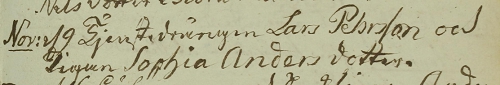 Nov: 19 Tjenstedrängen Lars Pehrson och
Pigan Sophia Anders dotter.